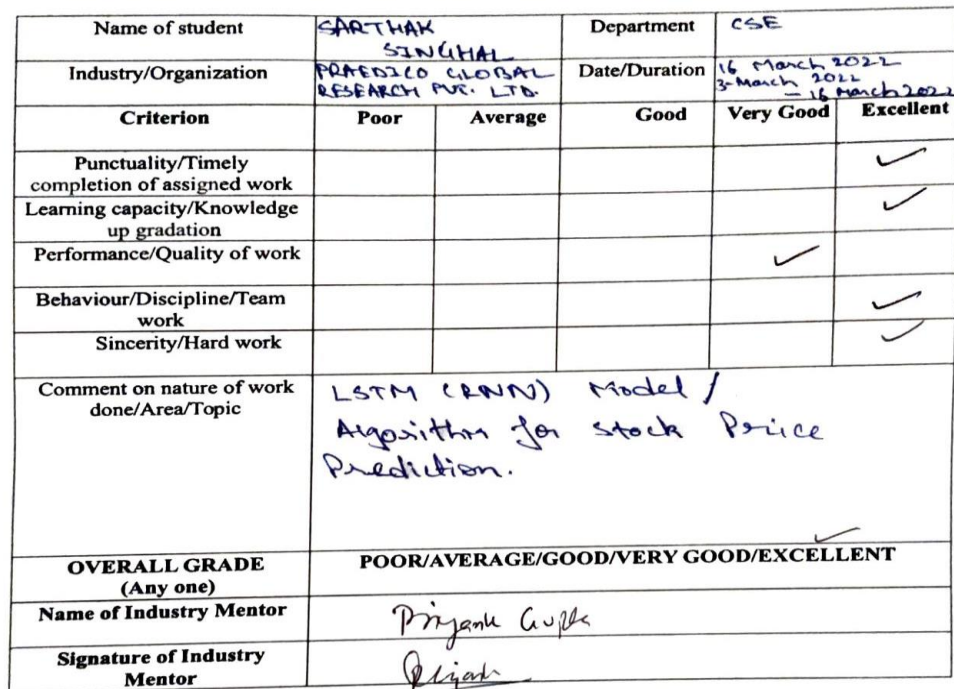 Name of student SARTHAK SINGHAL Department CSE
Industry/Organization PRAEDICO GLOBAL RESEARCH PVT. LTD. Date/Duration 16 March 2022
3-March 2022
- 16 March 2022
Criterion Poor Average Good Very Good Excellent
Punctuality/Timely
completion of assigned work ✓
Learning capacity/Knowledge
up gradation ✓
Performance/Quality of work ✓
Behaviour/Discipline/Team
work ✓
Sincerity/Hard work ✓
Comment on nature of work
done/Area/Topic
LSTM (RNN) Model /
Algorithm for stock Price
Prediction.
OVERALL GRADE
(Any one)
POOR/AVERAGE/GOOD/VERY GOOD/EXCELLENT ✓
Name of Industry Mentor Priyank Gupta
Signature of Industry
Mentor